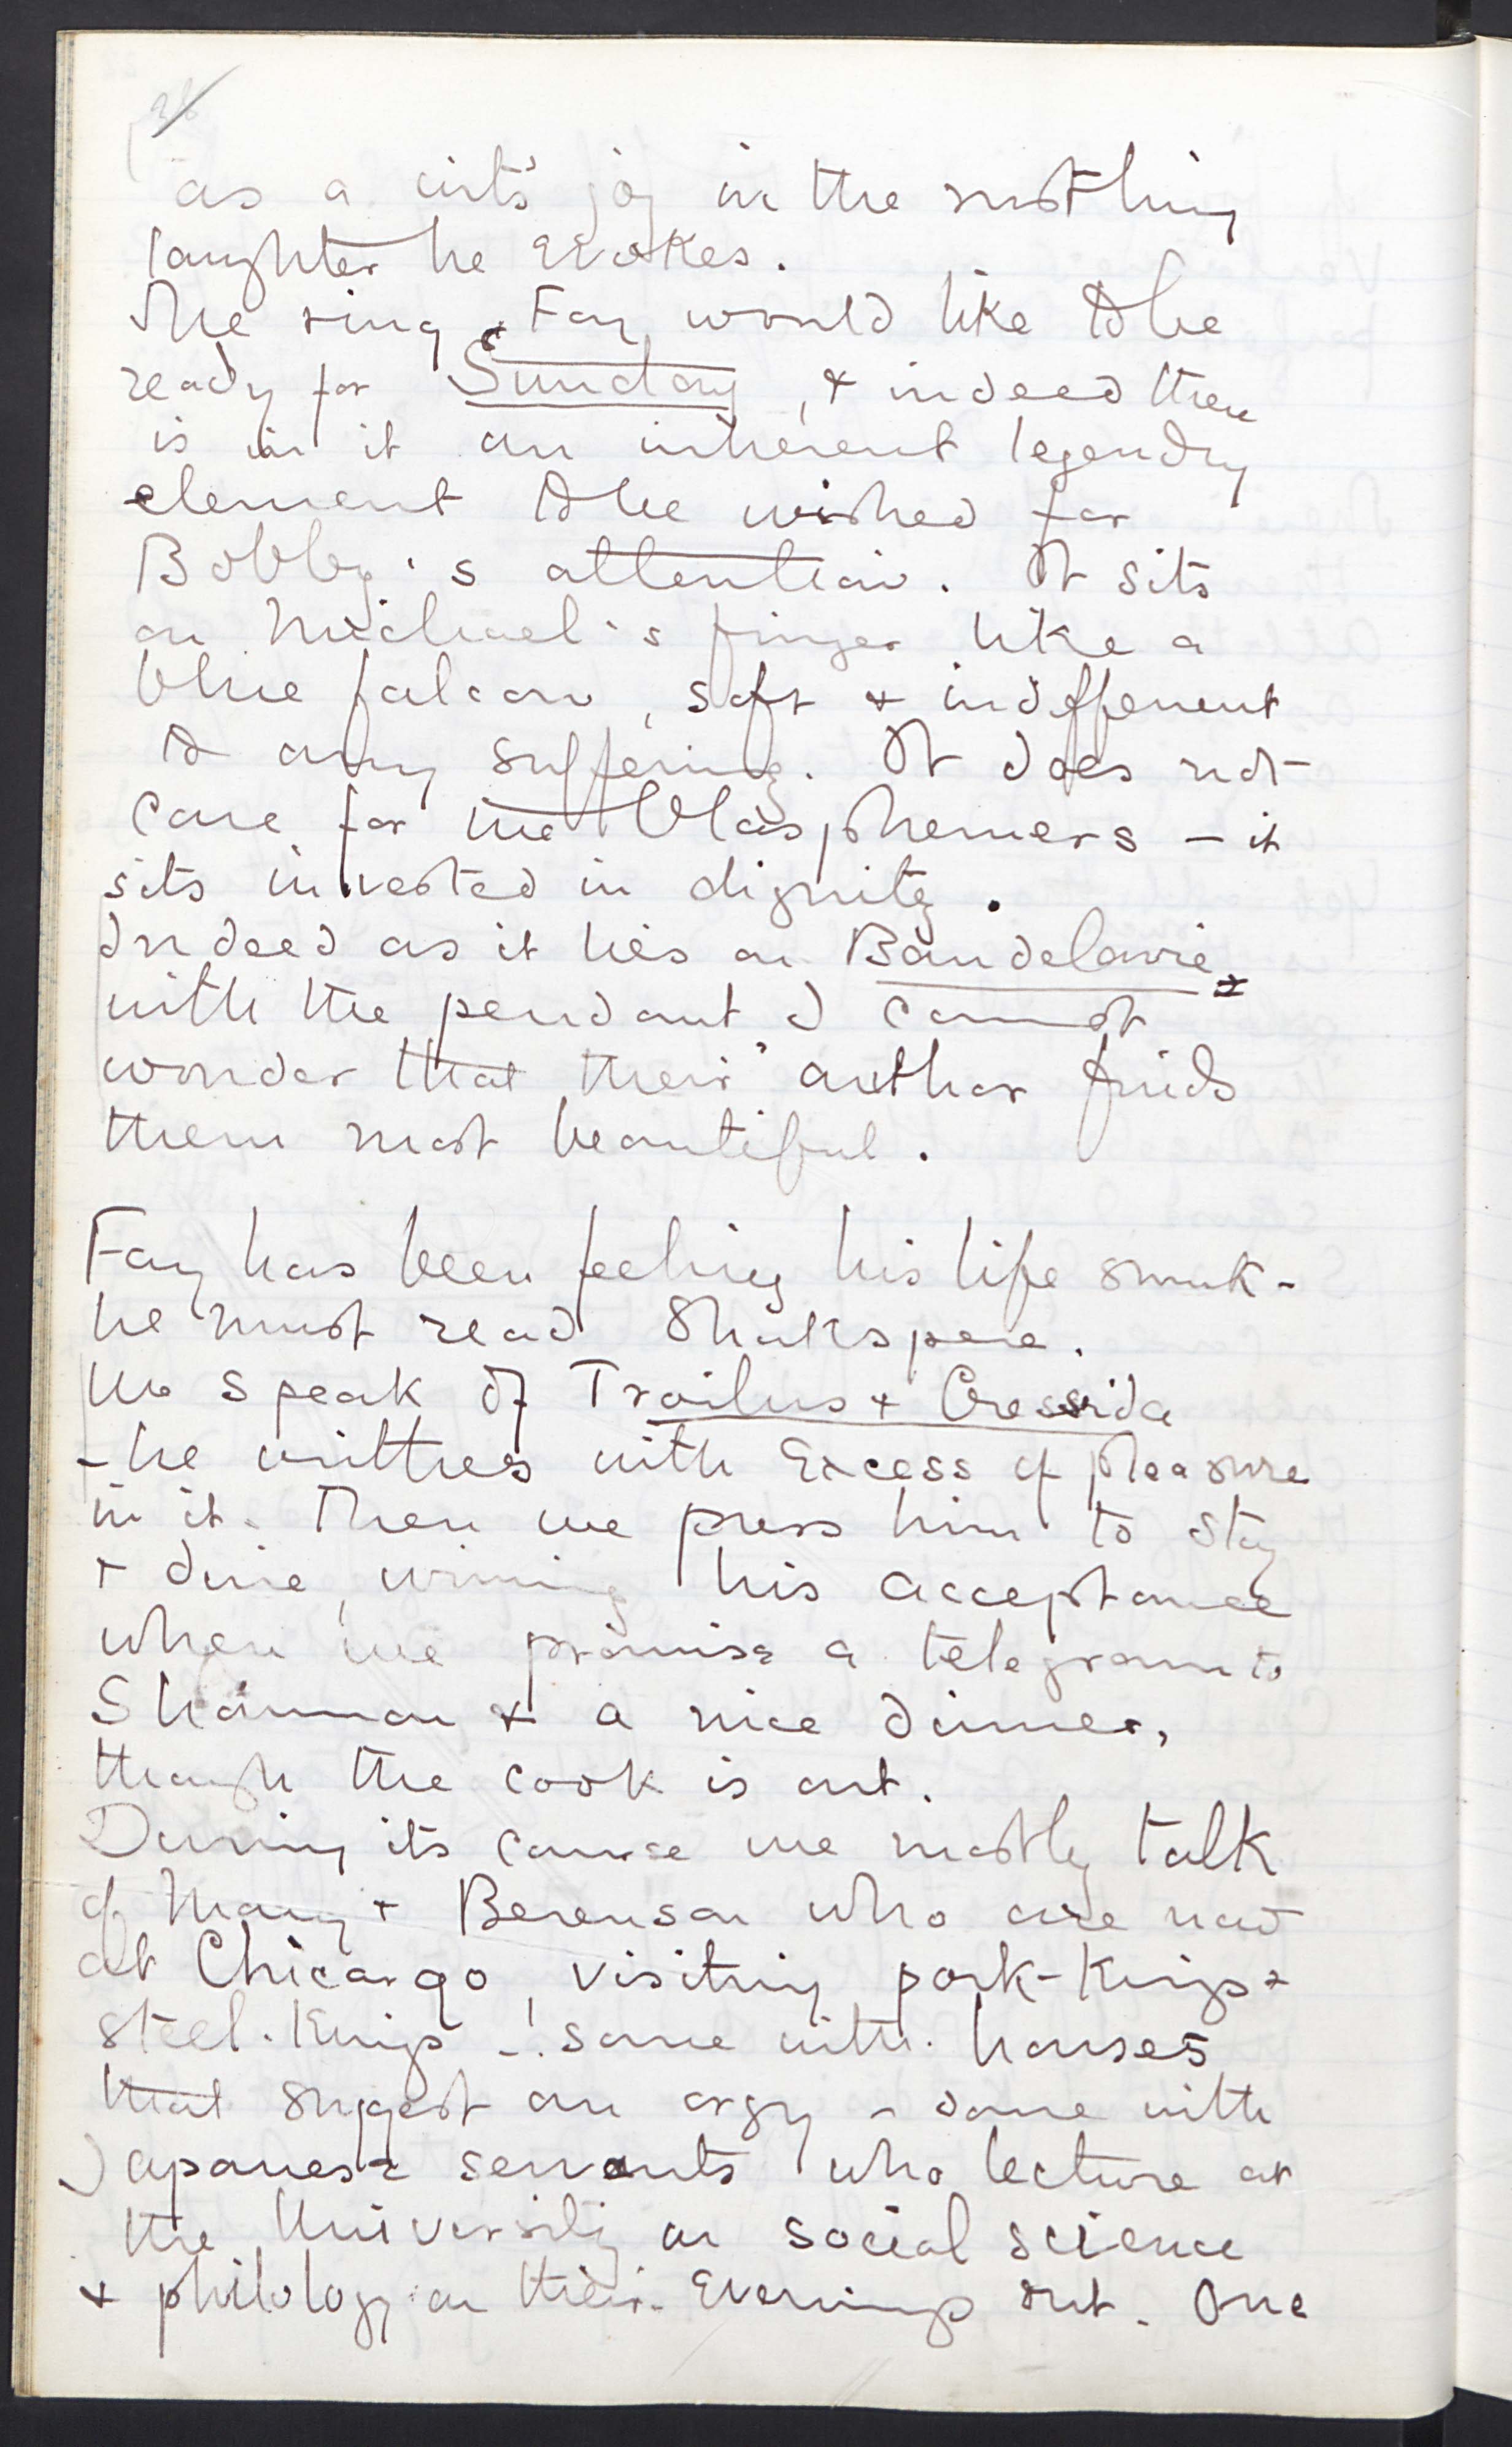 as a wit's joy in the mothing
laughter he evokes.
The ring, Fay would like to be
ready for Sunday, & indeed there
is in it an inherent legendry
element to be wished for
Bobby's attention. It sits
on Michael's finger like a
blue falcon, soft & indifferent
to any suffering. It does not
care for the blasphemers – it
sits invested in dignity.
Indeed as it lies on Baudelaire
with the pendant I cannot
wonder that their author finds
them most beautiful.
Fay has been feeling his life sunk –
he must read Shakspere.
We speak of Troilus & Cressida
– he writhes with excess of pleasure
in it. Then we press him to stay
& dine, winning his acceptance
when we promise a telegram to
Shannon & a nice dinner,
though the cook is out.
During its course we mostly talk
of Mary & Berenson who are now
at Chicargo, visiting pork-Kings &
steel-Kings –! some with houses
that suggest an orgy – some with
Japanese servants who lecture at
the University on social science
& philology on their evenings out. One